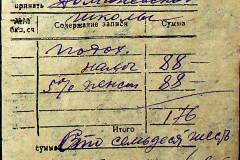 принять
школы
№№ Содержание записи Сумма
бал. сч
подох.
налог 88
5% пенси 88
176
Итого
сумма Сто семьдеся шесть